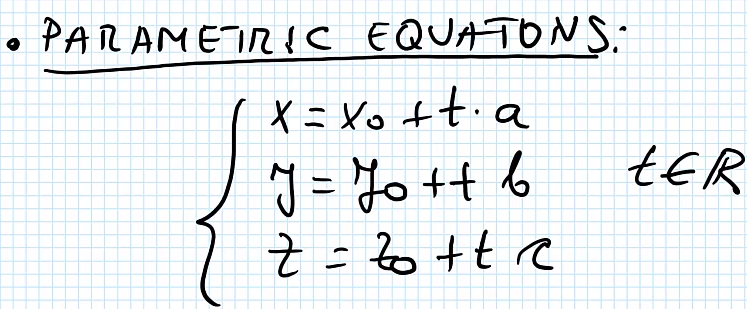 • PARAMETRIC EQUATONS:
x = x₀ + t · a
y = y₀ + t b t ∈ R
z = z₀ + t c